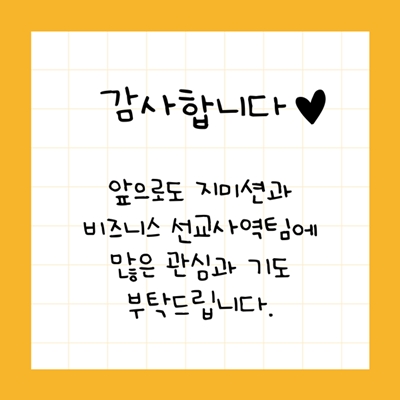 감사합니다 ♥
앞으로도 지미션과
비즈니스 선교사역팀에
많은 관심과 기도
부탁드립니다.